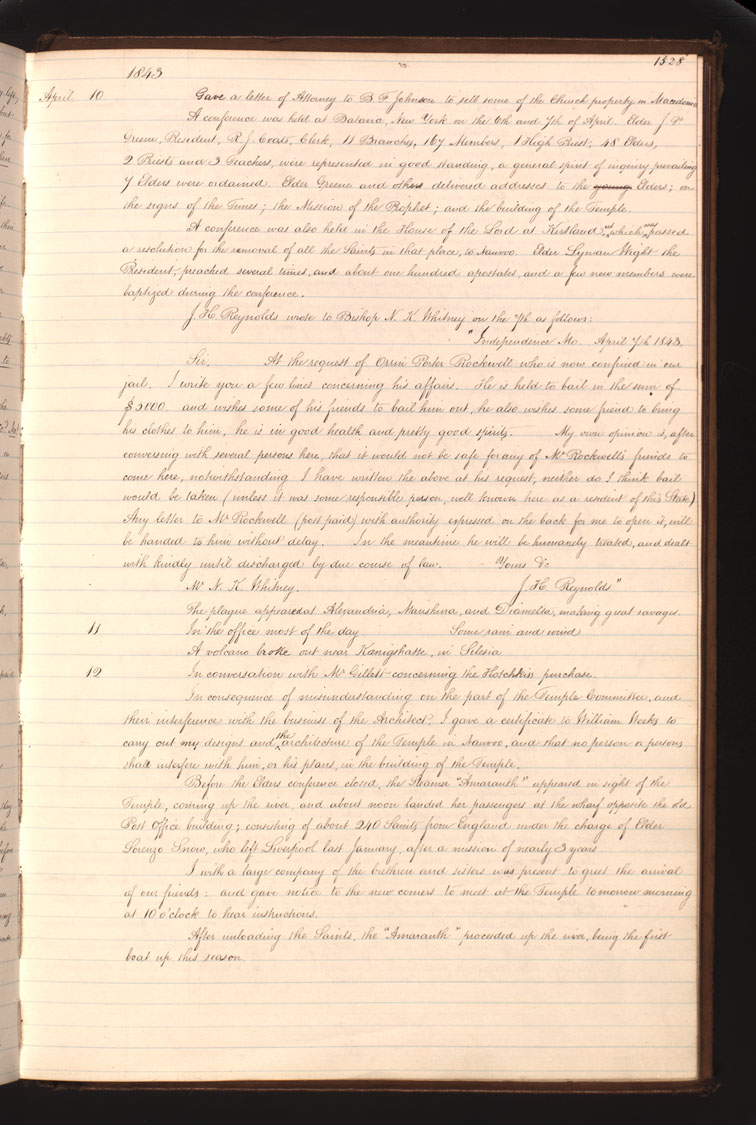 1528
1843
April 10 Gave a letter of Attorney to B. F. Johnson to sell some of the Church property in Macedonia
A conference was held at Batavia, New York on the 6th and 7th of April. Elder J. P.
Greene, President, R. J. Coats, Clerk, 11 Branches, 167 Members, 1 High Priest, 48 Elders,
2 Priests and 3 Teachers, were represented in good standing, a general spirit of inquiry prevailing
7 Elders were ordained. Elder Greene and others delivered addresses to the young Elders; on
the signs of the Times; the Mission of the Prophet; and the building of the Temple.
A conference was also held in the House of the Lord at Kirtland, at which was passed
a resolution for the removal of all the Saints in that place, to Nauvoo. Elder Lyman Wight the
President, preached several times, and about one hundred apostates, and a few new members were
baptized during the conference.
J. H. Reynolds wrote to Bishop N. K. Whitney on the 7th as follows:
"Independence Mo. April 7th 1843.
Sir. At the request of Orrin Porter Rockwell who is now confined in our
jail. I write you a few lines concerning his affairs. He is held to bail in the sum of
$5000. and wishes some of his friends to bail him out, he also wishes some friend to bring
his clothes to him, he is in good health and pretty good spirits. My own opinion is, after
conversing with several persons here, that it would not be safe for any of Mr Rockwell's friends to
come here, notwithstanding I have written the above at his request, neither do I think bail
would be taken (unless it was some responsible person, well known here as a resident of this State)
Any letter to Mr Rockwell (post paid) with authority expressed on the back for me to open it, will
be handed to him without delay. In the meantime he will be humanely treated, and dealt
with kindly until discharged by due course of law. Yours &c
Mr N. K. Whitney. J. H. Reynolds"
The plague appeared at Alexandria, and making great ravages.
11 In the office most of the day Some rain and wind
A volcano broke out near in Silesia
12 In conversation with Mr Gillett concerning the Hotchkiss purchase.
In consequence of misunderstanding on the part of the Temple Committee, and
their interference with the business of the Architect, I gave a certificate to William Weeks to
carry out my designs and the architecture of the Temple in Nauvoo, and that no person or persons
shall interfere with him, or his plans, in the building of the Temple.
Before the Elders conference closed, the Steamer "Amaranth" appeared in sight of the
Temple, coming up the river, and about noon landed her passengers at the wharf opposite the old
Post Office building; consisting of about 240 Saints from England under the charge of Elder
Lorenzo Snow, who left Liverpool last January, after a mission of nearly 3 years.
I with a large company of the brethren and sisters was present to greet the arrival
of our friends: and gave notice to the new comers to meet at the Temple tomorrow morning
at 10 o'clock to hear instructions.
After unloading the Saints, the "Amaranth" proceeded up the river, being the first
boat up this season.